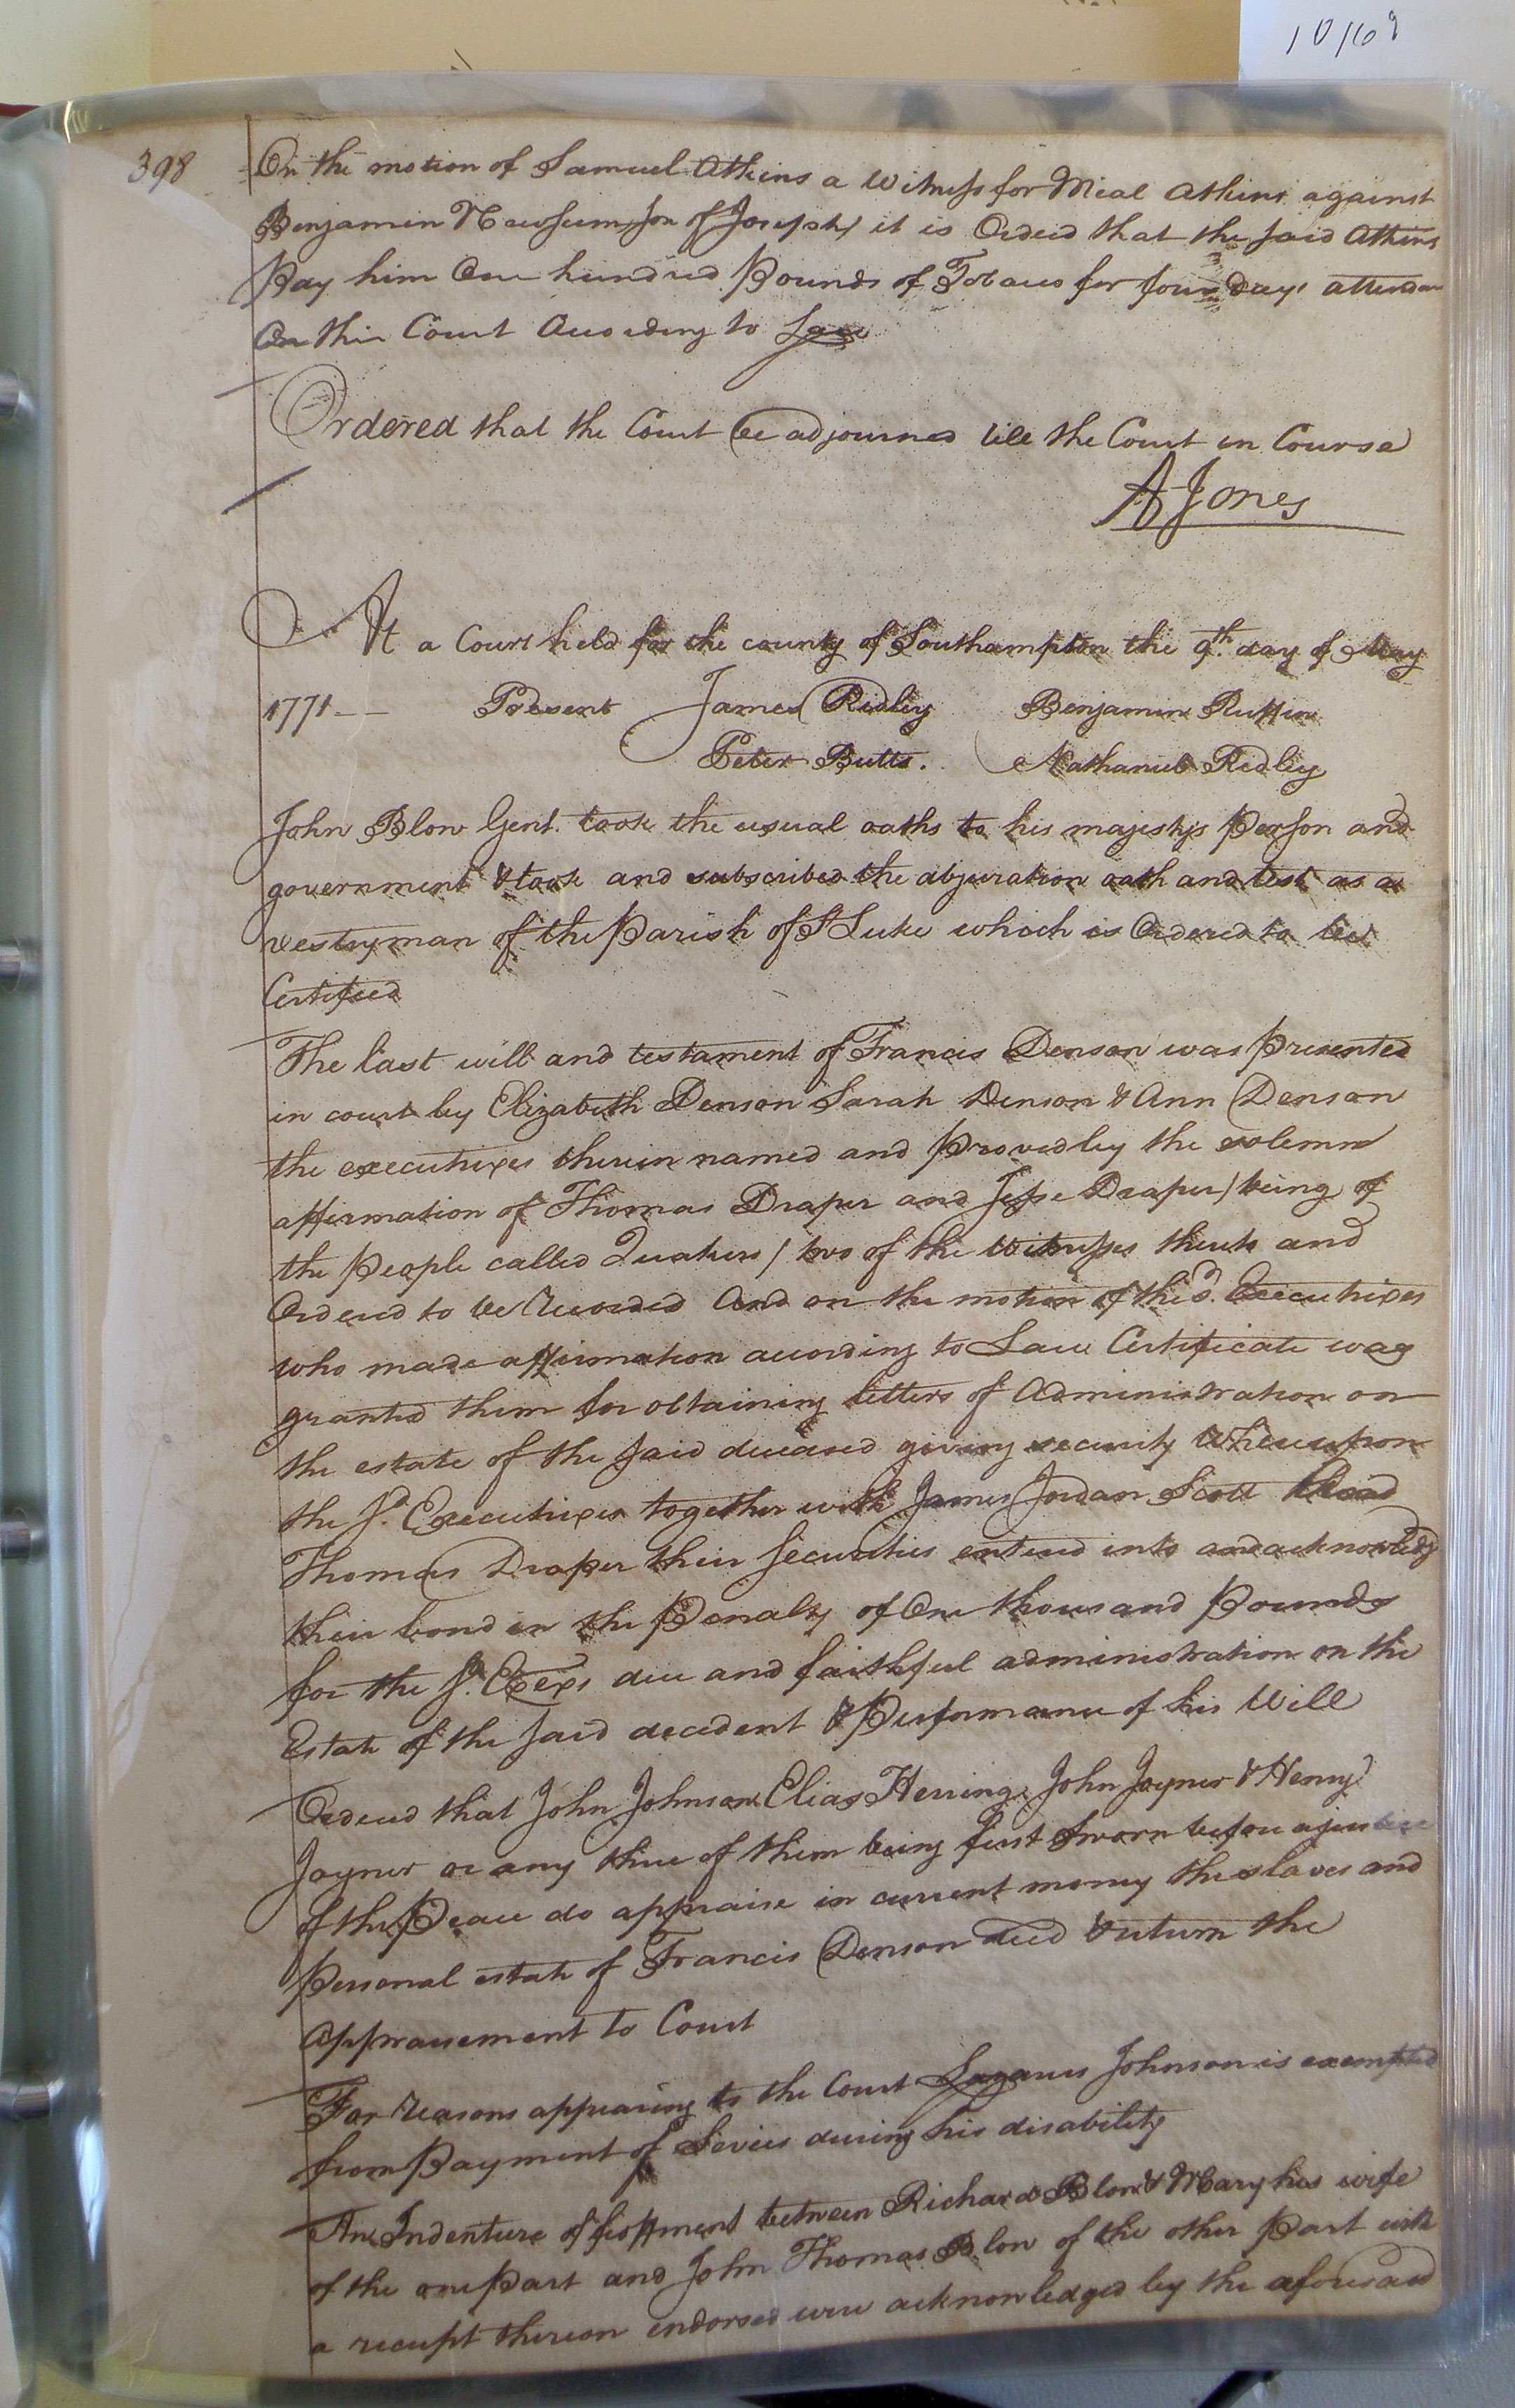 10169
398
On the motion of Samuel Atkins a Witness for Mial Atkins against
Benjamin Newsum /son of Joseph/ it is Ordered that the said Atkins
Pay him One hundred Pounds of Tobacco for four Days attendance
On this Court According to Law
Ordered that the Court be adjourned till the Court in Course
A Jones
At a Court held for the county of Southampton the 9th. day of May
1771 -- Present James Ridley Benjamin Ruffin
Peter Butts. Nathaniel Ridley
John Blow Gent. took the usual oaths to his majestys Person and
government & took and subscribed the abjuration oath and test as a
vestryman of the Parish of St Luke which is Ordered to be
Certified
The last will and testament of Francis Denson was Presented
in court by Elizabeth Denson Sarah Denson & Ann Denson
the executrixes therein named and Proved by the solemn
affirmation of Thomas Draper and Jesse Draper / being of
the People called Quakers / two of the Witnesses thereto and
Ordered to be Recorded And on the motion of the sd. Executrixes
who made affirmation according to Law Certificate was
granted them for obtaining letters of Administration on
the estate of the said deceased giving security Whereupon
the sd. Executrixes together with James Jordan Scott
Thomas Draper their securities entered into and acknowledg
their bond in the Penalty of One thousand Pounds
for the sd. Exexs due and faithful administration on the
Estate of the said decedent & Performance of his Will
Ordered that John Johnson Elias Herring John Joyner & Henry
Joyner or any three of them being first Sworn before a justice
of the Peace do appraise in current money the slaves and
Personal estate of Francis Denson decd & return the
appraisement to Court
For reasons appearing to the Court Lazarus Johnson is exempted
from Payment of Levies during his disability
An Indenture of feoffment between Richard Blow & Mary his wife
of the one Part and John Thomas Blow of the other Part with
a receipt thereon endorsed were acknowledged by the aforesaid